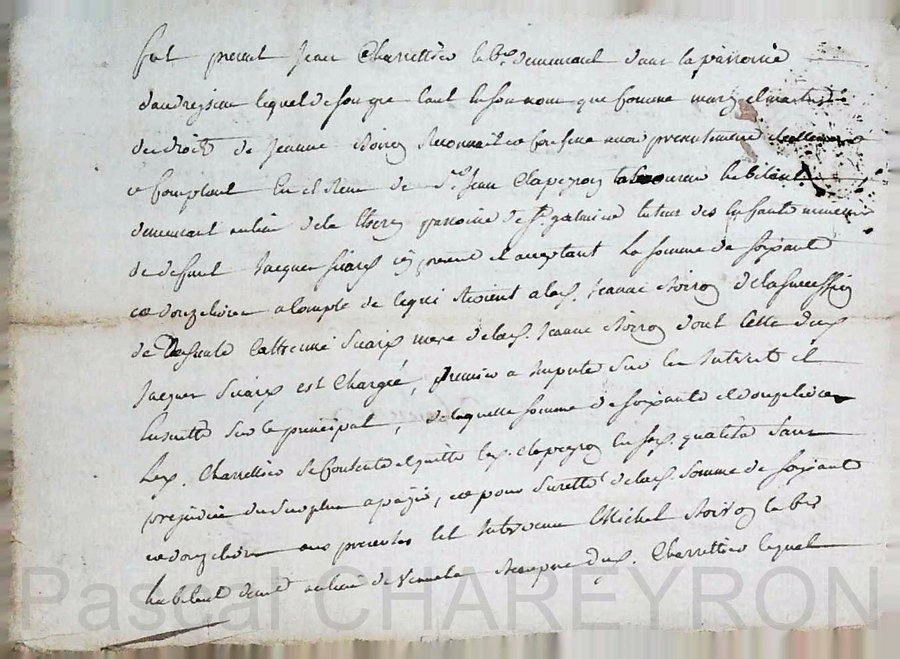 fut present Jean Charrettier lab.r demeurant dans la parroisse
lequel de son gre tant en son nom que comme mary et maitre
des droits de Jeanne Boiron Reconnait et confesse avoir presentement
et comptant eu et Receu de S.r Jean Clapeyron laboureur habitant
demeurant au lieu de la parroisse de S.t tuteur des enfants mineurs
de defunt Jacques Suarx icy present et acceptant la somme de soixante
et douze livres a compte de ce qui Revient a lad. Jeanne Boiron de la succession
de deffunte Catherine Suarx mere de lad. Jeanne Boiron dont led. dud.
Jacques Suarx est Chargée, premier a Imputer sur les Interets et
Ensuitte sur le principal, de laquelle somme de soixante et douze livres
Led. Charrettier se contente et quitte led. Clapeyron en sad. qualité sans
prejudice du surplus a payer, et pour suretté de lad. somme de soixante
et douze livres aux presentes Est Intervenu Michel Boiron lab.r
habitant au lieu de beaupere dud. Charrettier lequel
Pascal CHAREYRON